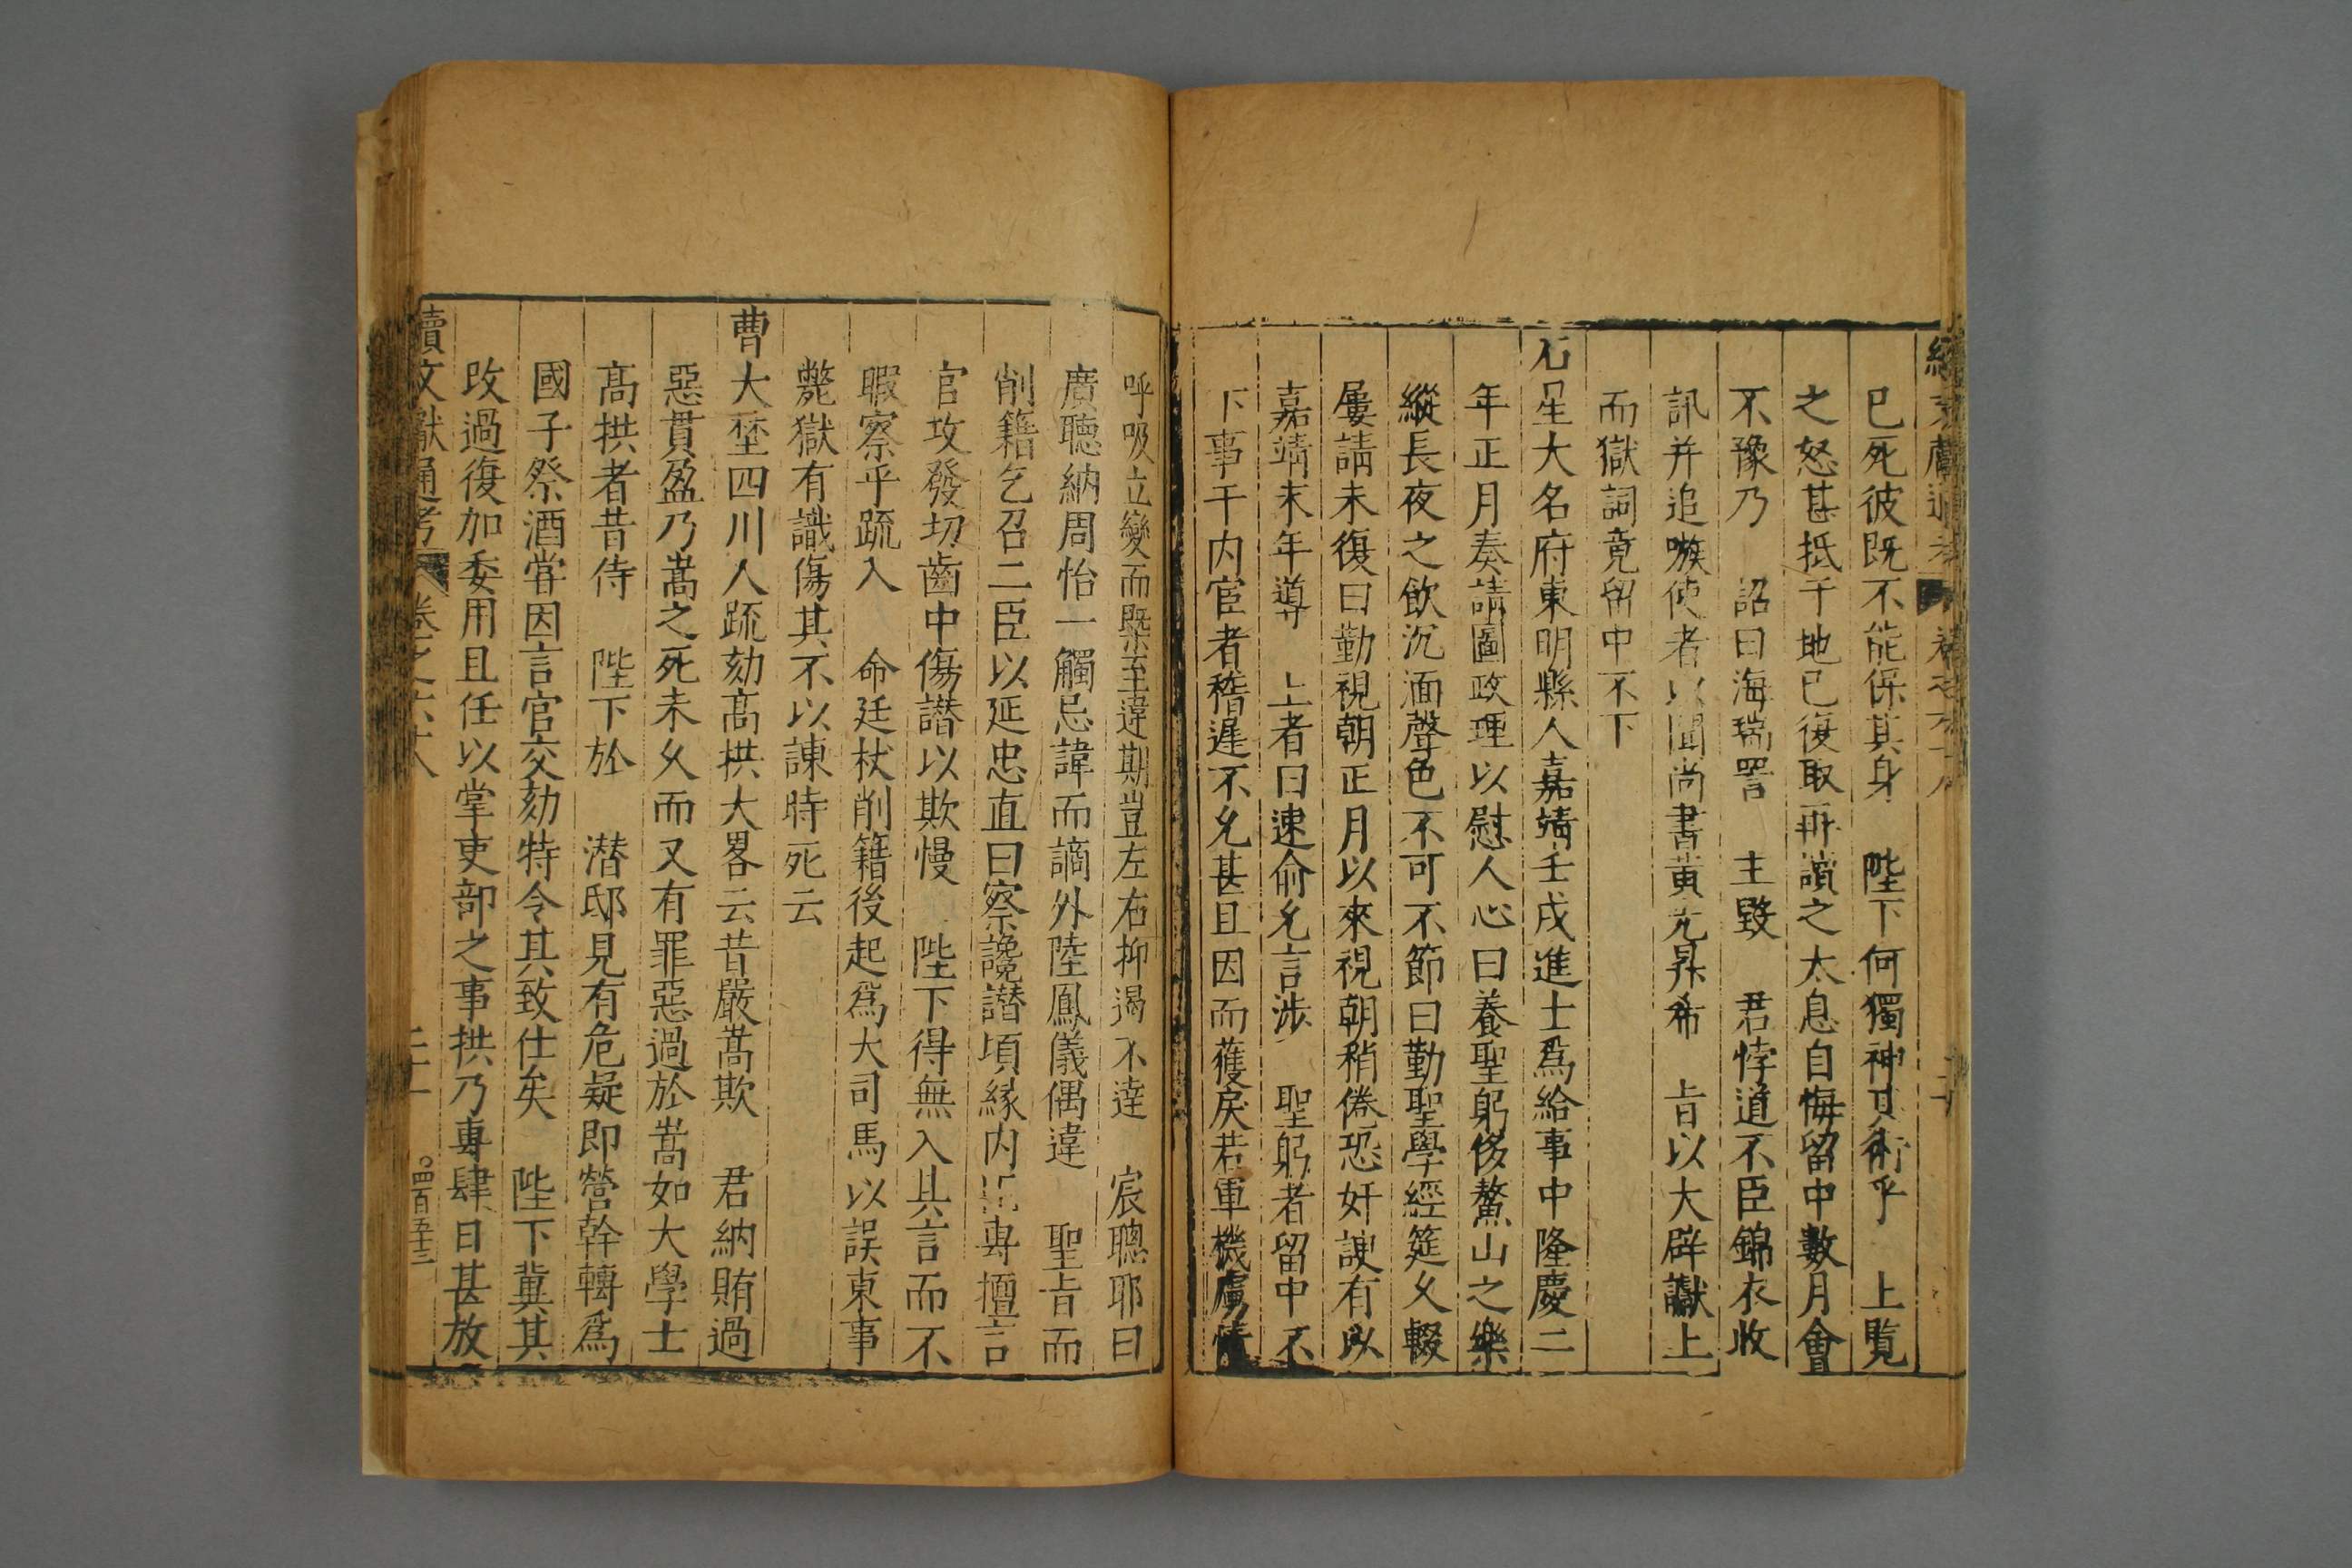 已死彼既不能保其身　陛下何獨神其術乎　上覧
之怒甚抵于地已復取再讀之太息自悔留中數月會
不豫乃　詔曰海瑞詈　主毀　君悖道不臣錦衣收
訊并追嗾使者以聞尚書黄光昇希　㫖以大辟讞上
而獄詞竟留中不下
石星大名府東明縣人嘉靖壬戌進士爲給事中隆慶二
年正月奏請圖政理以慰人心曰養聖躬侈鰲山之樂
縱長夜之飲沉湎聲色不可不節曰勤聖學經筵乆輟
屢請未復曰勤視朝正月以來視朝稍倦恐奸諛有以
嘉靖末年導　上者曰速俞允言涉　聖躬者留中不
下事干内宦者稽遲不允甚且因而獲戾若軍機虜情
呼吸立變而槩至違期豈左右抑遏不達　宸聰耶曰
廣聽納周怡一觸忌諱而謫外陸鳳儀偶違　聖㫖而
削籍乞召二臣以延忠直曰察讒譖頃縁内　專擅言
官攻發切齒中傷譖以欺慢　陛下得無入其言而不
暇察乎䟽入　命廷杖削籍後起爲大司馬以誤東事
斃獄有識傷其不以諌時死云
曹大埜四川人䟽劾髙拱大畧云昔嚴嵩欺　君納賄過
惡貫盈乃嵩之死未乆而又有罪惡過於嵩如大學士
髙拱者昔侍　陛下於　潜邸見有危疑即營幹轉爲
國子祭酒甞因言官交劾特令其致仕矣　陛下兾其
改過復加委用且任以掌吏部之事拱乃專肆日甚放
續文獻通考　卷之六十八　二十一　四百五十三